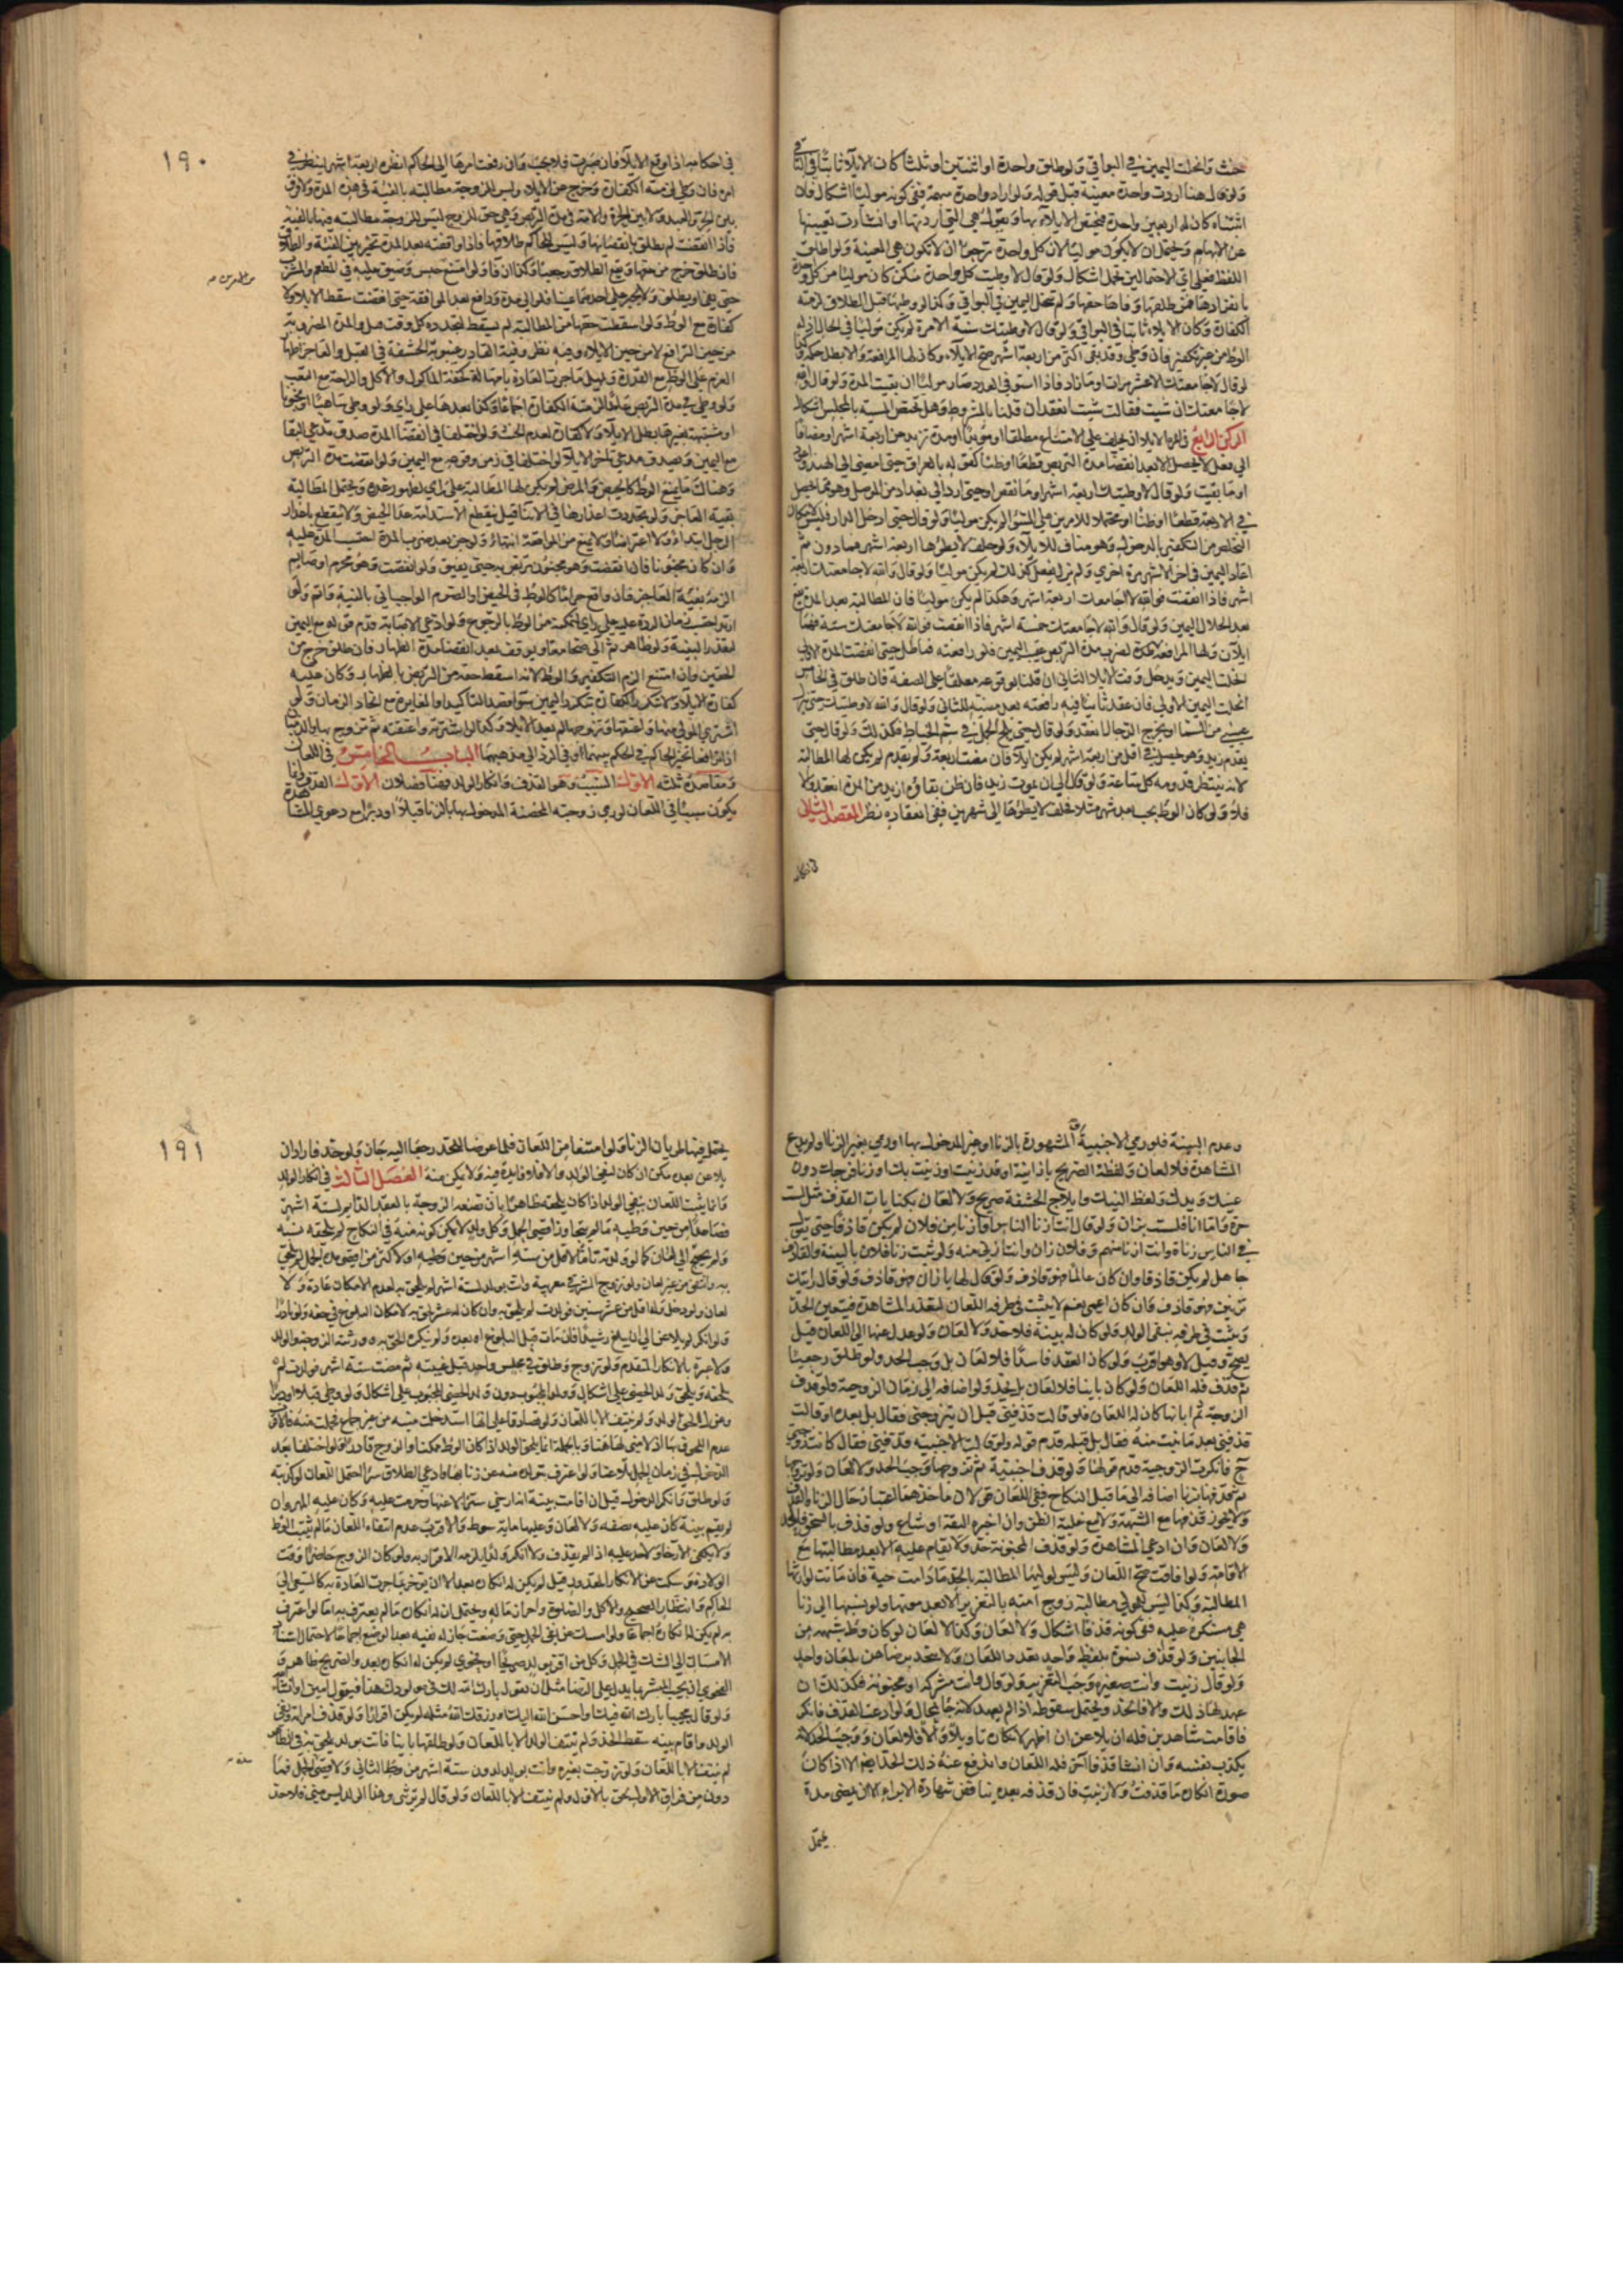 حنث وانحلت اليمين في البواقي ولو طلق واحدة او اثنتين او ثلثا كان الايلاء ثابتا في الباقي
ولو قال هنا اردت واحدة معينة قبل قوله ولو اراد واحدة مبهمة ففي كونه موليا اشكال فان
اثبتناه كان له ان يعين واحدة فيختص الايلاء بها ويقول هي التي اردتها او انشأت تعيينها
عن الابهام ويحتمل ان لا يكون موليا لان كل واحدة ترجو ان لا تكون هي المعينة ولو اطلق
اللفظ فعلى اي الاحتمالين يحمل اشكال ولو قال لا وطئت كل واحدة منكن كان موليا من كل واحدة
بانفرادها فمن طلقها وفاها حقها ولم تنحل اليمين في البواقي وكذا لو وطئها قبل الطلاق لزمته
الكفارة وكان الايلاء ثابتا في البواقي ولو قال لا وطئتك سنة الا مرة لم يكن موليا في الحال اذ له
الوطء من غير تكفير فان وطئ وقد بقي اكثر من اربعة اشهر صح الايلاء وكان لها المرافعة والا بطل حكمه وكذا
لو قال لا جامعتك الا عشر مرات او ما زاد فاذا استوفى العدد صار موليا ان بقيت المدة ولو قال والله
لا جامعتك ان شئت فقالت شئت انعقد ان قلنا بالمشروط وهل تختص المشية بالمجلس اشكال
الركن الرابع في المدة الايلاء ان يحلف على الامتناع مطلقا او مؤبدا او مدة تزيد عن اربعة اشهر او مضافا
الى فعل لا يحصل الا بعد انقضاء مدة التربص قطعا او ظنا كقوله بالعراق حتى امضي الى الهند واعود
او ما بقيت ولو قال لا وطئتك اربعة اشهر او ما نقص او حتى ارد الى بغداد من الموصل وهو مما يحصل
في الاربعة قطعا او ظنا او محتملا للامرين على السواء لم يكن موليا ولو قال حتى ادخل الدار فليس بايلاء لامكان
التخلص من التكفير بالدخول وهو مناف للايلاء ولو حلف لا يطؤها اربعة اشهر فما دون ثم
اعاد اليمين في اخر الاشهر مرة اخرى ولم يزل يفعل كذلك لم يكن موليا ولو قال والله لا جامعتك اربعة
اشهر فاذا انقضت فوالله لا جامعتك اربعة اشهر وهكذا لم يكن موليا فان المطالبة بعد المدة تقع
بعد انحلال اليمين ولو قال والله لا جامعتك خمسة اشهر فاذا انقضت فوالله لا جامعتك ستة فهما
ايلاآن ولها المرافعة لضرب مدة التربص عقيب اليمين فلو رافعته فماطل حتى انقضت المدة الاولى
انحلت اليمين ويدخل وقت الايلاء الثاني ان قلنا بوقوعه معلقا على الصفة فان طلق في الخامس
انحلت اليمين الاولى فان عقد ثانيا فيه رافعته بعد مضيه للثاني ولو قال والله لا وطئتك حتى ينزل
عيسى من السماء او يخرج الدجال انعقد ولو قال حتى يلج الجمل في سم الخياط فكذلك ولو قال حتى
يقدم زيد وهو يحصل في اقل من اربعة اشهر لم يكن ايلاء فان مضت اربعة ولو لم يقدم لم يكن لها المطالبة
لانه ينتظر قدومه كل ساعة ولو قال الى ان يموت زيد فان ظن بقاؤه ازيد من المدة انعقد والا
فلا ولو كان الوطء يجب بعد شهر مثلا فحلف لا يطؤها الى شهرين ففي انعقاده نظر المقصد الثاني
في احكامه
١٩٠
في احكامه اذا وقع الايلاء فان صبرت فلا بحث وان رفعت امرها الى الحاكم انظره اربعة اشهر لينظر في
امره فان وطئ لزمته الكفارة وخرج عن الايلاء وليس للزوجة مطالبته بالفئة في هذه المدة ولا فرق
بين الحر والعبد ولا بين الحرة والامة في مدة التربص وهي حق للزوج ليس للزوجة مطالبته فيها بالفئة
فاذا انقضت لم يطلق بانقضائها وليس للحاكم طلاقها فاذا واقفته بعد المدة تخير بين الفئة والطلاق
فان طلق خرج من حقها ويقع الطلاق رجعيا وكذا ان فاء ولو امتنع حبس وضيق عليه في المطعم والمشرب
حتى يفئ او يطلق ولا يجبر على احدهما عينا فلو الى مدة ودافع بعد الموافقة حتى انقضت سقط الايلاء ولا
كفارة مع الوطء ولو اسقطت حقها من المطالبة لم يسقط لتجدده كل وقت والمدة المضروبة
من حين الترافع لا من حين الايلاء وفيه نظر وفئة القادر غيبوبة الحشفة في القبل والعاجز اظهار
العزم على الوطء مع القدرة ويمهل ما جرت العادة بامهاله كخفة المأكول والاكل والراحة مع التعب
ولو وطئ في مدة التربص عامدا لزمته الكفارة اجماعا وكذا بعدها على رأي ولو وطئ ساهيا او مجنونا
او شبهته بغيرها بطل الايلاء ولا كفارة لعدم الحنث ولو اختلفا في انقضاء المدة صدق مدعي البقاء
مع اليمين ويصدق مدعي تأخر الايلاء لو اختلفا في زمن وقوعه مع اليمين ولو انقضت مدة التربص
وهناك ما يمنع الوطء كالحيض والمرض لم يكن لها المطالبة على رأي لظهور عذره ويحتمل المطالبة
بفئة العاجز ولو تجددت اعذارها في الاثناء قيل ينقطع الاستدامة عدا الحيض ولا ينقطع باعذار
الرجل ابتداء ولا اعتراضا ولا يمنع من المرافعة انتهاء ولو جن بعد ضرب المدة احتسب المدة عليه
وان كان مجنونا فان انقضت وهو مجنون تربص به حتى يفيق ولو انقضت وهو محرم او صائم
الزم بفئة العاجز فان واقع حراما كالوطء في الحيض او الصوم الواجب اتى بالفئة واثم ولو
ارتد احتسب زمان الردة عليه على رأي لتمكنه من الوطء بالرجوع ولو ادعى الاصابة قدم قوله مع اليمين
لتعذر البينة ولو ظاهر ثم آلى صحا معا ويوقف بعد انقضاء مدة الظهار فان طلق خرج من
الحقين وان امتنع الزم التكفير والوطء لانه اسقط حقه من التربص بالظهار وكان عليه
كفارة الايلاء ولا تتكرر الكفارة بتكرر اليمين سواء قصد التأكيد او المغايرة مع اتحاد الزمان ولو
اشترى المولى منها واعتقها وتزوجها لم يعد الايلاء وكذا لو اشترته واعتقته ثم تزوج بها والذميان
اذا ترافعا تخير الحاكم في الحكم بينهما او في الرد الى مذهبهما الباب الخامس في اللعان
ومقاصده ثلثة الاول السبب وهو القذف وانكار الولد فهنا فصلان الاول القذف وانما
يكون سببا في اللعان لو رمى زوجته المحصنة المدخول بها بالزنا قبلا او دبرا مع دعوى المشاهدة
وعدم البينة فلو رمى الاجنبية او المشهورة بالزنا او غير المدخول بها او رمى بغير الزنا او لم يدع
المشاهدة فلا لعان ولفظه الصريح يا زانية او قد زنيت او زنيت بك او زنا فرجك دون
عينك ويدك ولفظ النيك وايلاج الحشفة صريح ولا لعان بكنايات القذف مثل لست
حرة واما انا فلست بزان ولو قال انت ازنا الناس او ازنا من فلان لم يكن قاذفا حتى يقول
في الناس زناة وانت ازنا منهم وفلان زان وانت ازنى منه ولو ثبت زنا فلان بالبينة والقاذف
جاهل لم يكن قاذفا وان كان عالما فهو قاذف ولو قال لها يا زان فهو قاذف ولو قال رأيتك
تزنين فهو قاذف فان كان اعمى نعم لا يثبت في طرفه اللعان لتعذر المشاهدة فيتعين الحد
ويثبت في طرفه بنفي الولد ولو كان له بينة فلا حد ولا لعان ولو عدل عنها الى اللعان قيل
يصح وقيل لا وهو اقرب ولو كان العقد فاسدا فلا لعان بل وجب الحد ولو طلق رجعيا
ثم قذف فله اللعان ولو كان بائنا فلا لعان بل يحد ولو اضافه الى زمان الزوجية ولو قذف
الزوجة ثم ابانها كان له اللعان فلو قالت قذفني قبل ان يتزوجني فقال بل بعده او قالت
قذفني بعد ما بنت منه فقال بل قبله قدم قوله ولو قالت الاجنبية قذفني فقال كانت زوجتي
ح فانكرت الزوجية قدم قولها ولو قذف اجنبية ثم تزوجها وجب الحد ولا لعان ولو تزوجها
ثم قذفها بزنا اضافه الى ما قبل النكاح ففي اللعان قولان مأخذهما اعتبار حال الزنا والقذف
ولا يجوز قذفها مع الشبهة ولا مع غلبة الظن وان اخبره الثقة او شاع ولو قذف بالسحق فالحد
ولا لعان وان ادعى المشاهدة ولو قذف المجنونة حد ولا يقام عليه الا بعد مطالبتها مع
الافاقة ولو افاقت صح اللعان وليس لوليها المطالبة بالحد ما دامت حية فان ماتت لوارثها
المطالبة وكذا ليس للمولى مطالبة زوج امته بالتعزير الا بعد موتها ولو نسبها الى زنا
هي مستكرهة عليه ففي كونه قذفا اشكال ولا لعان وكذا لا لعان لو كان وطء شبهة من
الجانبين ولو قذف نسوة بلفظ واحد تعدد اللعان ولا يتحد برضاهن بلعان واحد
ولو قال زنيت وانت صغيرة وجب التعزير ولو قال وانت مشركة او مجنونة فكذلك ان
عهد لها ذلك والا فالحد ويحتمل سقوطه اذا لم يعهد لانه جاء بمحال ولو ادعت القذف فانكر
فاقامت شاهدين فله ان يلاعن ان اظهر لانكاره تأويلا والا فلا لعان ووجب الحد لانه
يكذب نفسه وان انشأ قذفا آخر فله اللعان واندفع عنه ذلك الحد ايضا الا اذا كان
صورة انكاره ما قذفت ولا زنيت فان قذفه بعده يناقض شهادة الابراء الا ان يمضي مدة
يحتمل
١٩١
يحتمل فيها طريان الزنا ولو امتنعا من اللعان فلما عرضا للحد رجعا اليه جاز ولو حد فاراد ان
يلاعن بعده مكن ان كان لنفي الولد والا فلا فايدة فيه ولا يمكن منه الفصل الثاني في انكار الولد
وانما يثبت اللعان بنفي الولد اذا كان يلحقه ظاهرا بان تضعه الزوجة بالعقد الدائم لستة اشهر
فصاعدا من حين وطئه ما لم يتجاوز اقصى الحمل وكل ولد لا يمكن كونه منه في النكاح لم يلحقه نسبه
ولم يحتج الى لعان كما لو ولدته تاما لاقل من ستة اشهر من حين وطئه او لاكثر من اقصى مدة الحمل لم يلحق
به وانتفى من غير لعان ولو تزوج المشرقي مغربية واتت بولد لستة اشهر لم يلحق به لعدم الامكان عادة ولا
لعان ولو دخل وله اقل من عشر سنين فولدت لم يلحق به وان كان له عشر لحق به لامكان البلوغ في حقه ولو نادرا
ولو انكر لم يلاعن الى ان يبلغ رشيدا فان مات قبل البلوغ او بعده ولم ينكره الحق به وورثته الزوجة والولد
ولا عبرة بالانكار المتقدم ولو تزوج وطلق في مجلس واحد قبل غيبته ثم مضت ستة اشهر فولدت لم
يلحقه ويلحق ولد الخصي على اشكال وولد المجبوب دون ولد الخصي المجبوب على اشكال ولو وطئ قبلا او دبرا
وعزل لحق الولد ولم ينتف الا باللعان ولو تصادقا على انها استدخلت منيه من غير جماع فحملت منه فالاقرب
عدم اللحوق بها اذ لا مني لها هنا وبالجملة انما يلحق الولد اذا كان الوطء ممكنا والزوج قادرا ولو اختلفا بعد
الدخول في زمان الحمل تلاعنا ولو اعترف بتولده منه عن زنا بها وادعى الطلاق سرا احتمل اللعان لو كذبته
ولو طلق وانكر الدخول قيل ان اقامت بينة انه ارخى سترا لاعنها وحرمت عليه وكان عليه المهر وان
لم تقم بينة كان عليه نصفه ولا لعان وعليها مائة سوط والاقرب عدم انتفاء اللعان ما لم يثبت الوطء
ولا يكفي الارخاء ولا حد عليه اذ لم يقذف ولا انكر ولدا يلزمه الاقرار به ولو كان الزوج حاضرا وقت
الولادة وسكت عن الانكار المقدور قيل لم يكن له انكاره بعد الا ان يؤخر بما جرت العادة به كالسعي الى
الحاكم وانتظار الصبح والاكل والصلوة واحراز ماله ويحتمل ان له انكاره ما لم يعترف به اما لو اعترف
به لم يكن له انكاره اجماعا ولو امسك عن نفي الحمل حتى وضعت جاز له نفيه بعد الوضع اجماعا لاحتمال استناد
الامساك الى الشك في الحمل وكل من اقر بولد صريحا او فحوى لم يكن له انكاره بعد والصريح ظاهر و
الفحوى ان يجيب المبشر بما يدل على الرضا مثل ان يقول بارك الله لك في مولودك هذا فيقول امين او ان شاء الله
ولو قال مجيبا بارك الله فيك او احسن الله اليك او رزقك الله مثله لم يكن اقرارا ولو قذف امراته ونفى
الولد واقام بينة سقط الحد ولم ينتف الولد الا باللعان ولو طلقها باينا فاتت بولد يلحق به في الظاهر
لم ينتف الا باللعان ولو تزوجت بغيره واتت بولد لدون ستة اشهر من وطء الثاني ولاقصى الحمل فما
دون من فراق الاول لحق بالاول ولم ينتف الا باللعان ولو قال لم تزني وهذا الولد ليس مني فلا حد